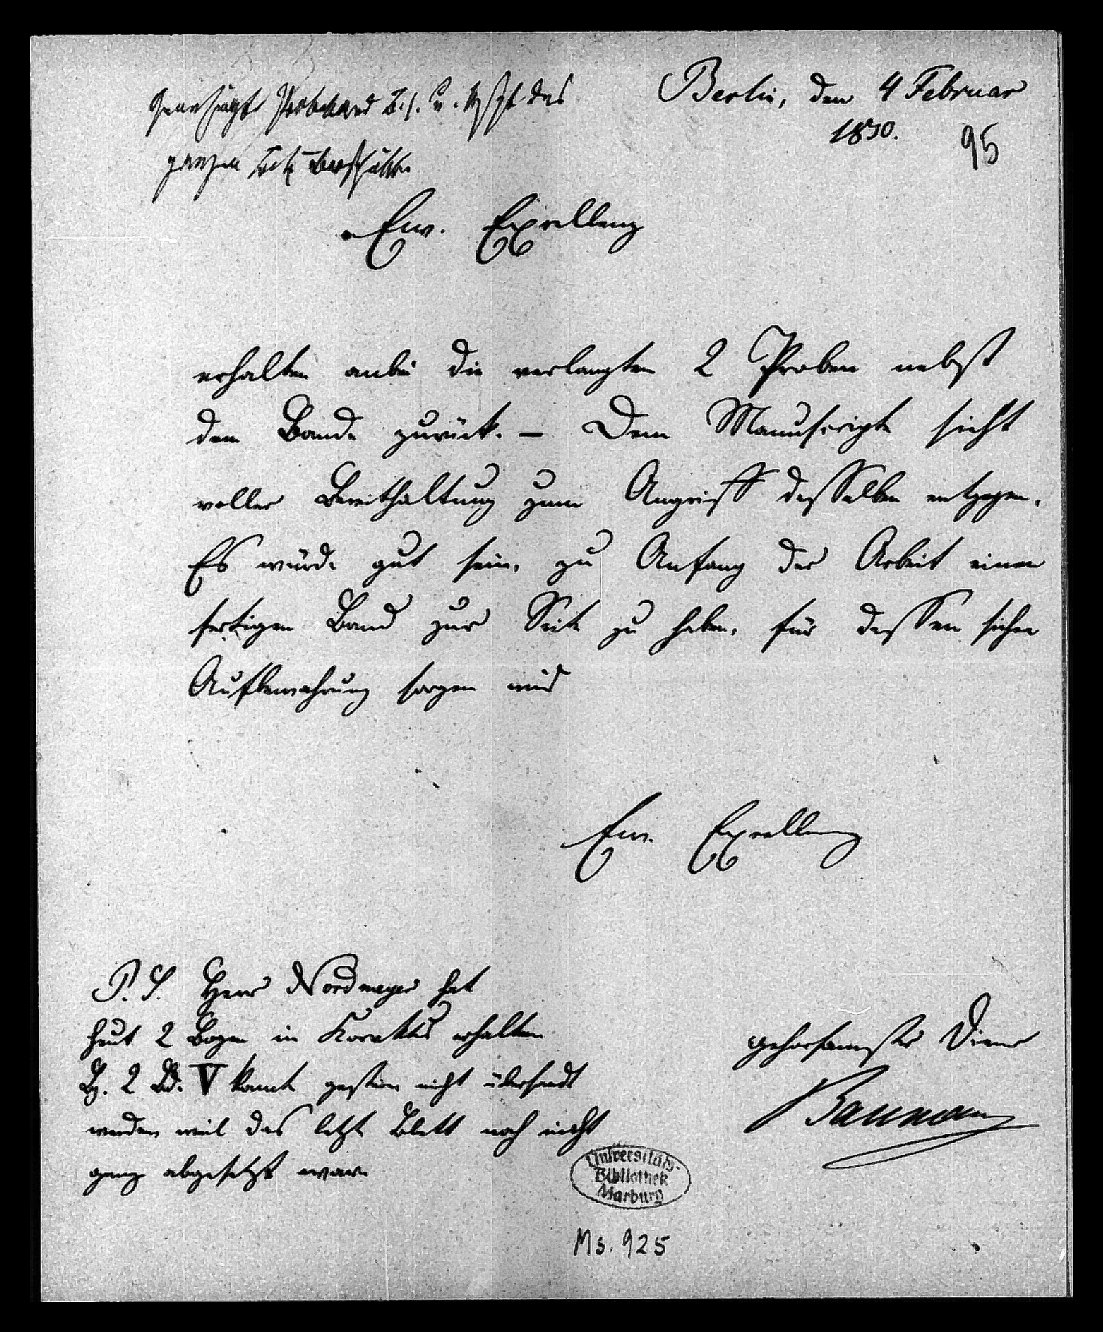 Berlin, den 4 Februar
1830.
95
das
ganzen
Ew. Excellenz
erhalten anbei die verlangten 2 Proben nebst
dem Bande zurück. – Dem Manuscripte sieht
voller Bereithaltung zum Angriff desselben entgegen.
Es würde gut sein, zu Anfang der Arbeit einen
fertigen Band zur Seite zu haben, für dessen sichere
Aufbewahrung sorgen wird
Ew. Excellenz
P. S. Herr Nordmeyer hat
heut 2 Bogen in Korrektur erhalten
Bg. 2 Bd. V konnte gestern nicht übersandt
werden weil das letzte Blatt noch nicht
ganz abgesetzt war.
gehorsamster Diener
Universitäts-
Bibliothek
Marburg
Ms. 925